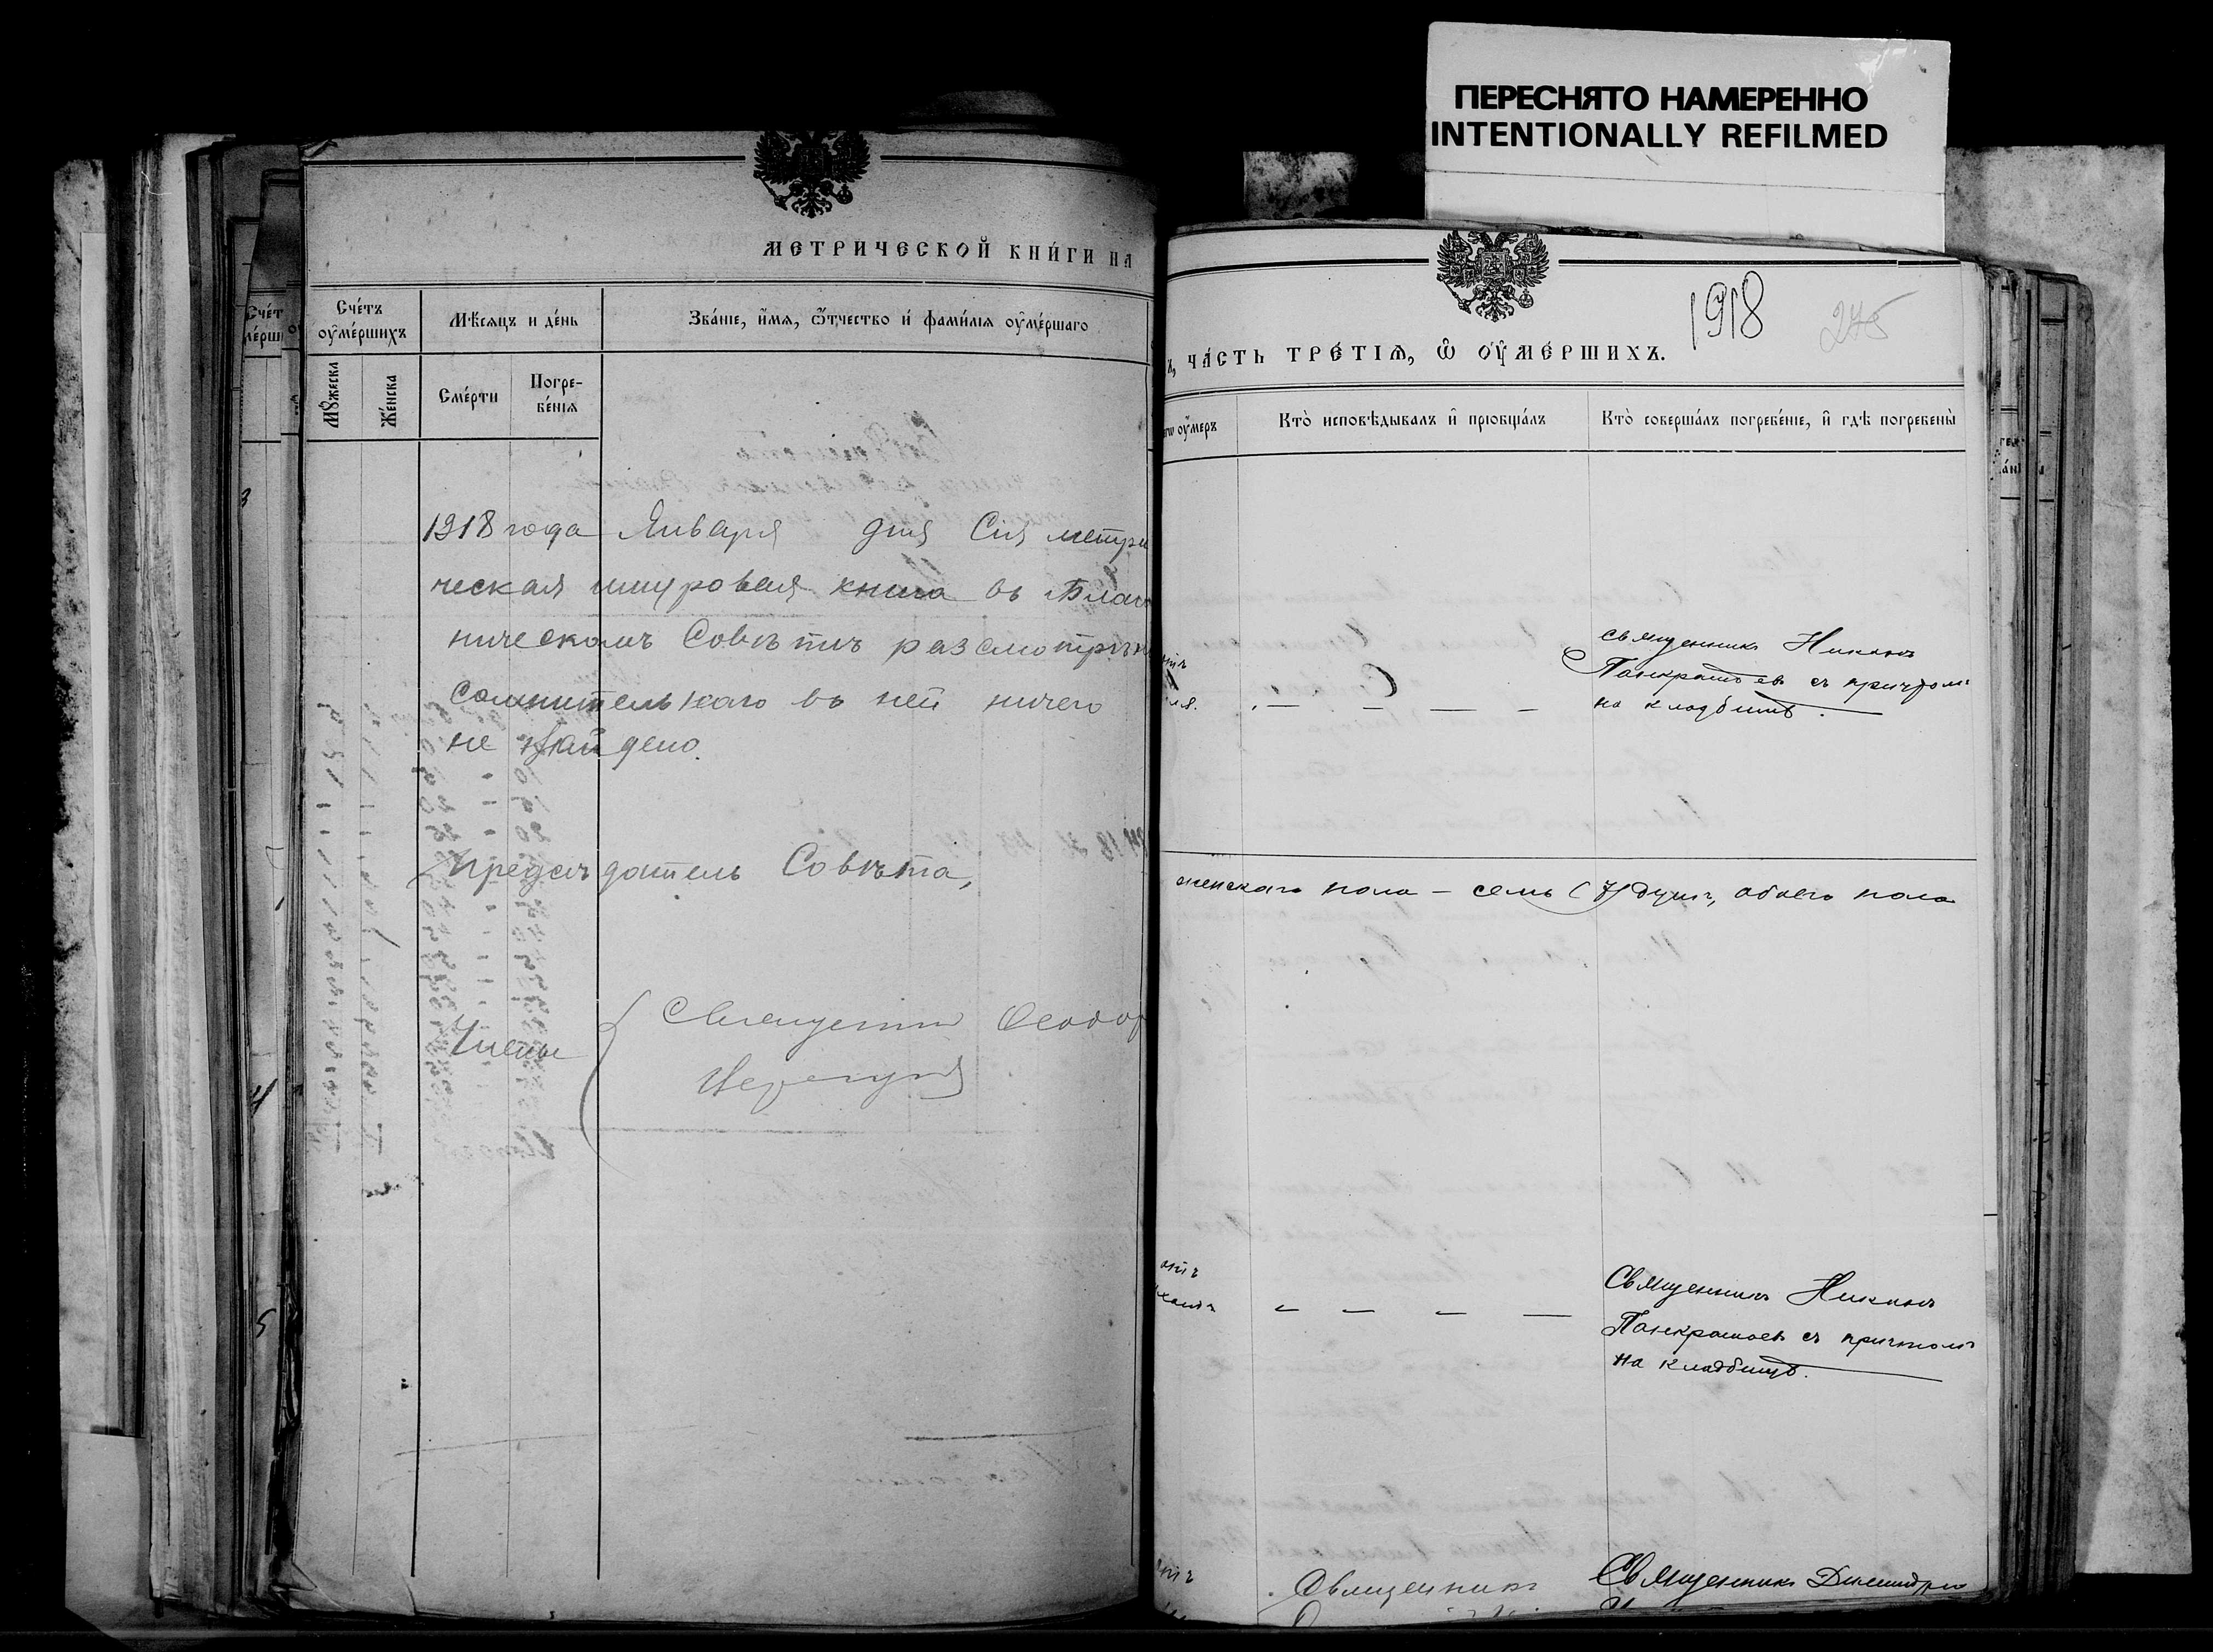 ПЕРЕСНЯТО НАМЕРЕННО
INTENTIONALLY REFILMED
МЕТРИЧЕСКОЙ КНИ́ГИ НА
Сче́тъ ᲂу҆ме́ршихъ
Мѣ́сяцъ и де́нь
Зва́нїе, и҆́мѧ, ѻ҆́тчество и҆ фами́лїѧ ᲂу҆ме́ршаго
Мꙋ́жеска
Же́нска
Сме́рти
Погре-
бе́нїѧ
1918 года Января дня Сія метри
ческая шнуровая книга въ Благ
ническомъ Совѣтѣ разсмотрѣн
Сомнительнаго въ ней ничего
не найдено.
Предсѣдатель Совѣта,
Члены
Священник Ѳеодор
1918
275
ЧА́СТЬ ТРЕ́ТІѦ, Ѡ ОУ҆МЕ́РШИХЪ.
ᲂу҆́меръ
Кто̀ исповѣ́дывалъ и҆ прїобща́лъ
Кто̀ соверша́лъ погребе́нїе, и҆ гдѣ̀ погребены̀
священникъ Никонъ
Панкратьев съ причтомъ
на кладбищѣ.
женскаго пола – семь (7) душъ, обоего пола
Священникъ Никонъ
Панкратьев съ причтомъ
на кладбищѣ.
Священникъ
Священникъ Димитрий